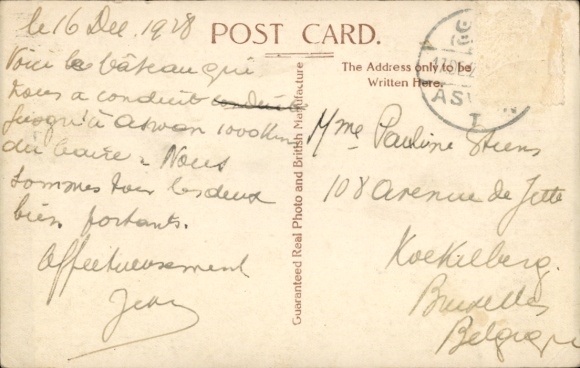 le 16 Dec. 1928
Voici le bâteau qui
nous a conduit
jusqu'à Aswan 1000 Km
du Caire. Nous
sommes tous les deux
bien portants.
Affectueusement
Jean
POST CARD.
The Address only to be
Written Here.
Guaranteed Real Photo and British Manufacture
Mme Pauline Steens
108 avenue de Jette
Koekelberg.
Bruxelles
Belgique